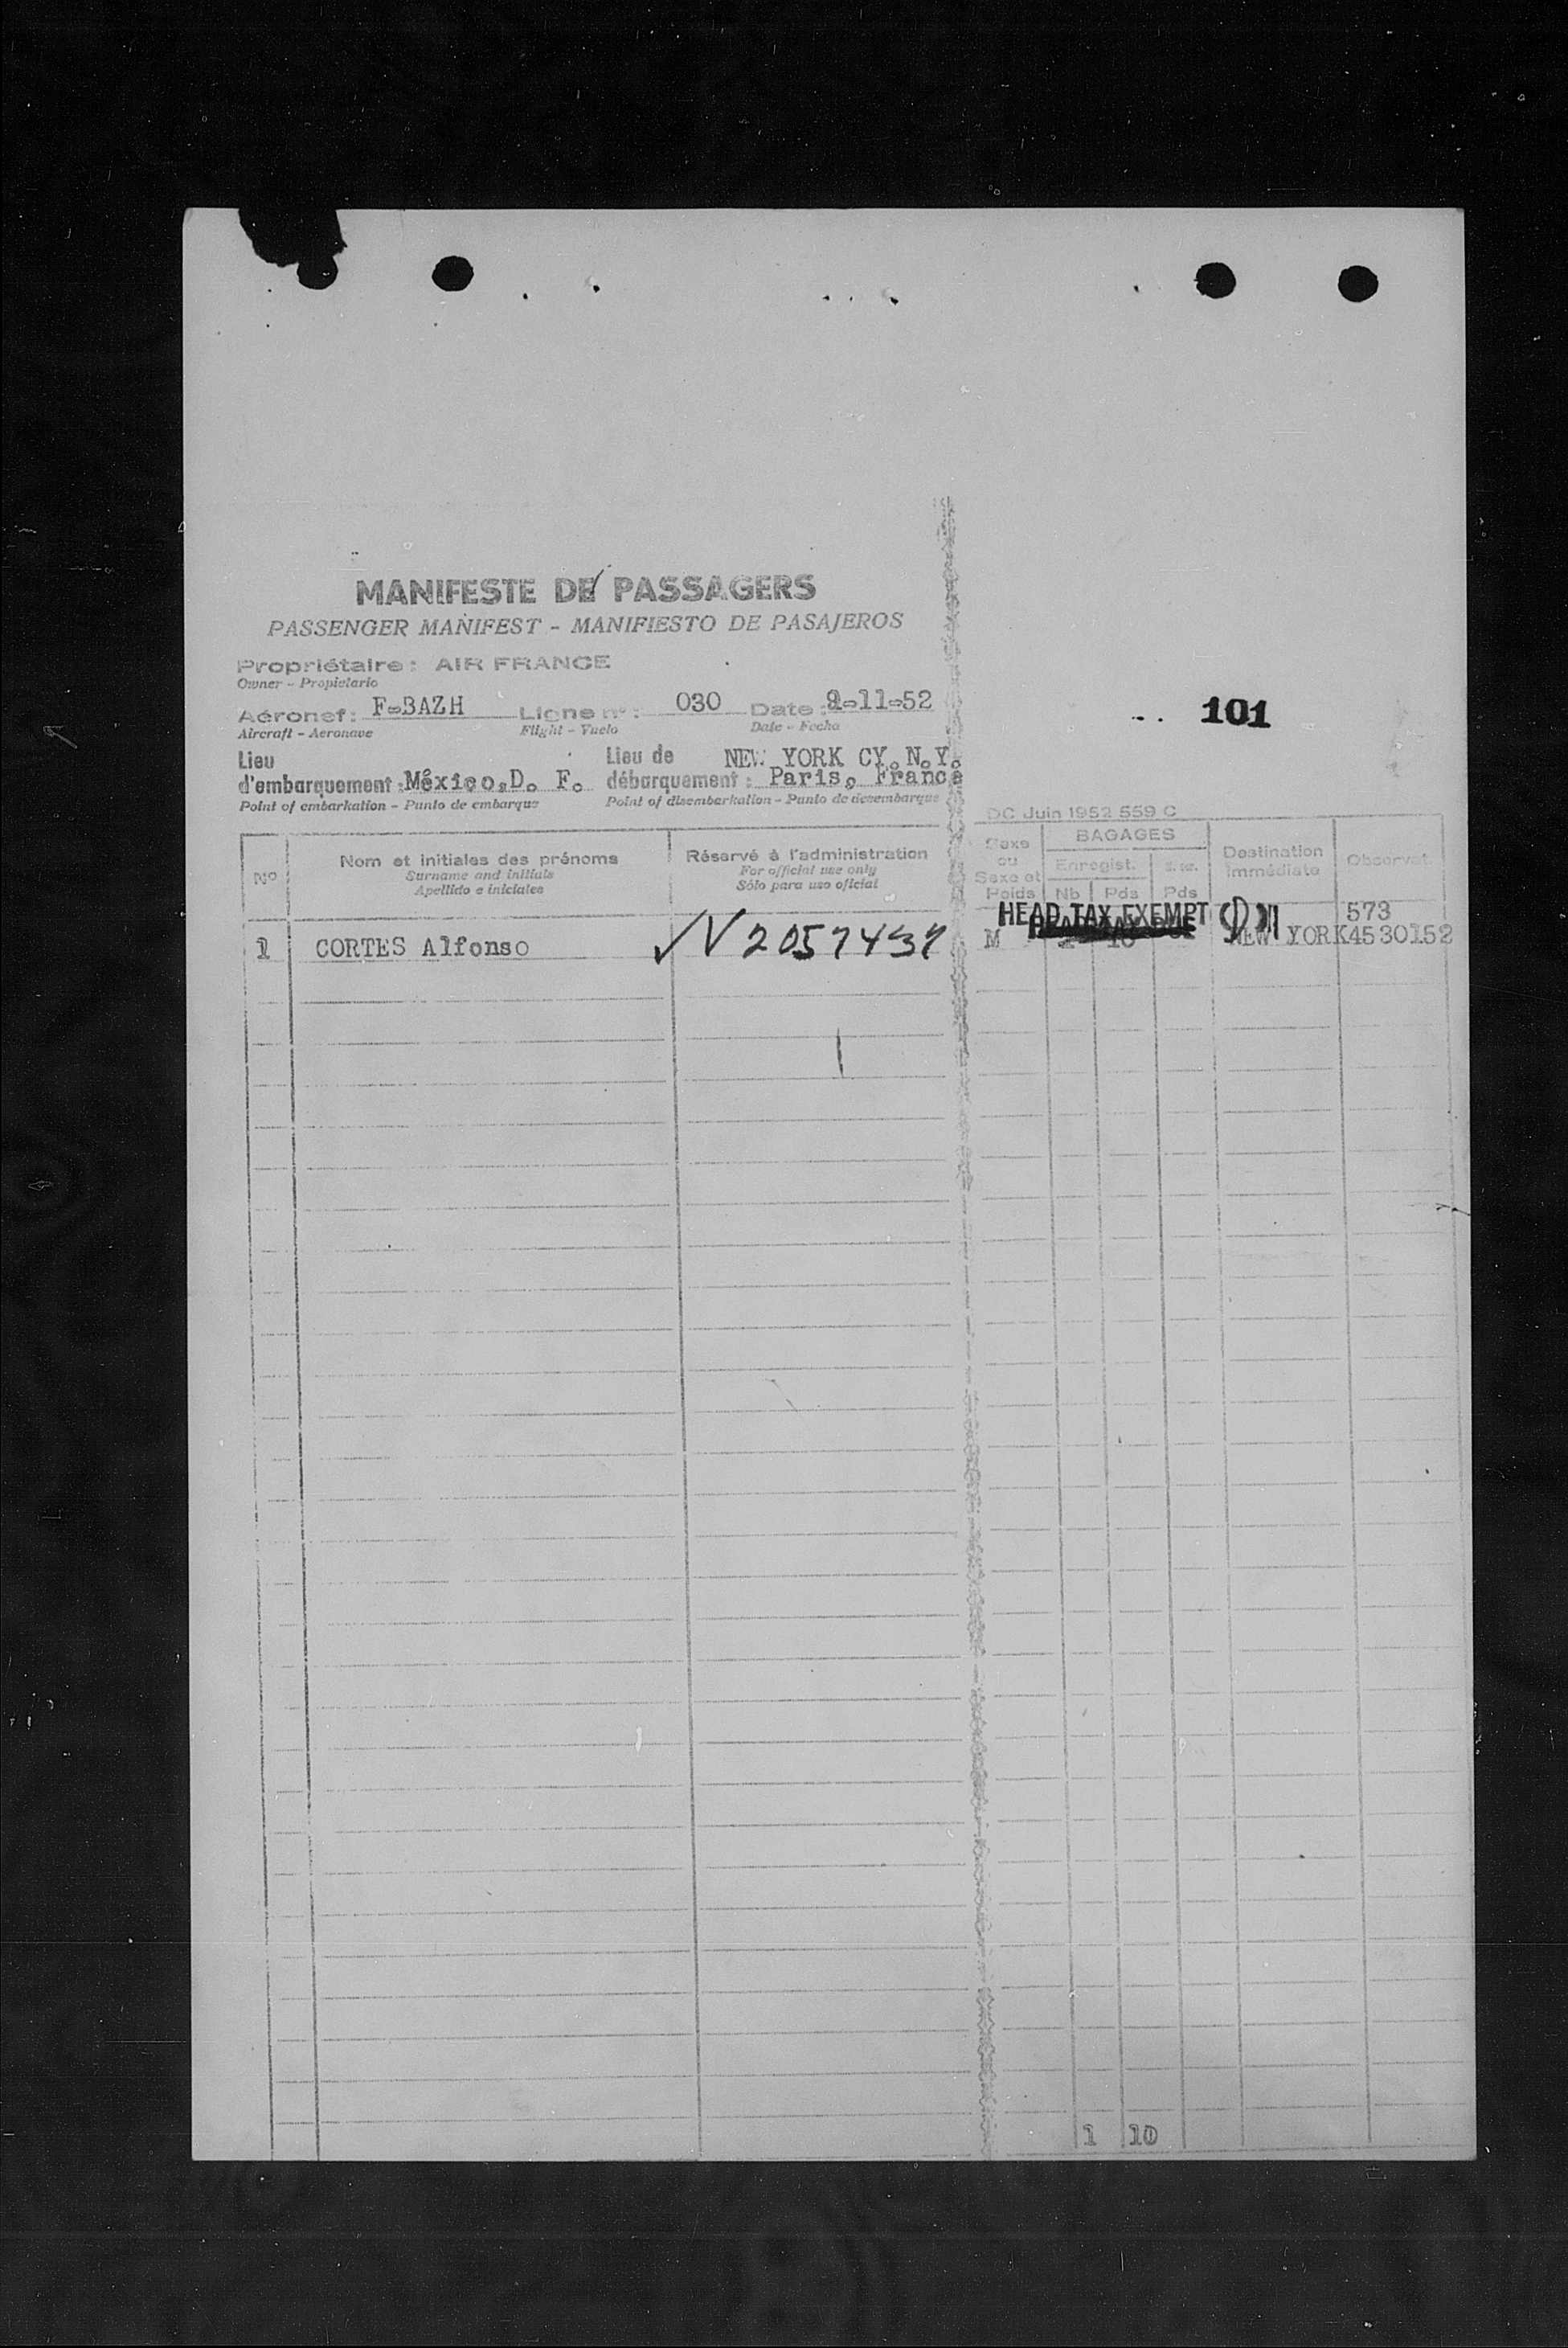 MANIFESTE DE PASSAGERS
PASSENGER MANIFEST - MANIFIESTO DE PASAJEROS
Propriétaire : AIR FRANCE
Owner - Propietario
Aéronef : F-BAZH Ligne n° : 030 Date : 9-11-52
Aircraft - Aeronave Flight - Vuelo Date - Fecha
101
Lieu Lieu de NEW YORK CY. N.Y.
d'embarquement : México, D. F. débarquement : Paris, France
Point of embarkation - Punto de embarque Point of disembarkation - Punto de desembarque
DC Juin 1952 559 C
N° Nom et initiales des prénoms Réservé à l'administration Sexe ou Sexe et Poids BAGAGES Enregist. Nb Pds Pds Destination immédiate Observat.
Surname and initials For official use only
Apellido e iniciales Sólo para uso oficial
HEAD TAX EXEMPT 573
1 CORTES Alfonso V 2057437 M 10 NEW YORK 4530152
1 10